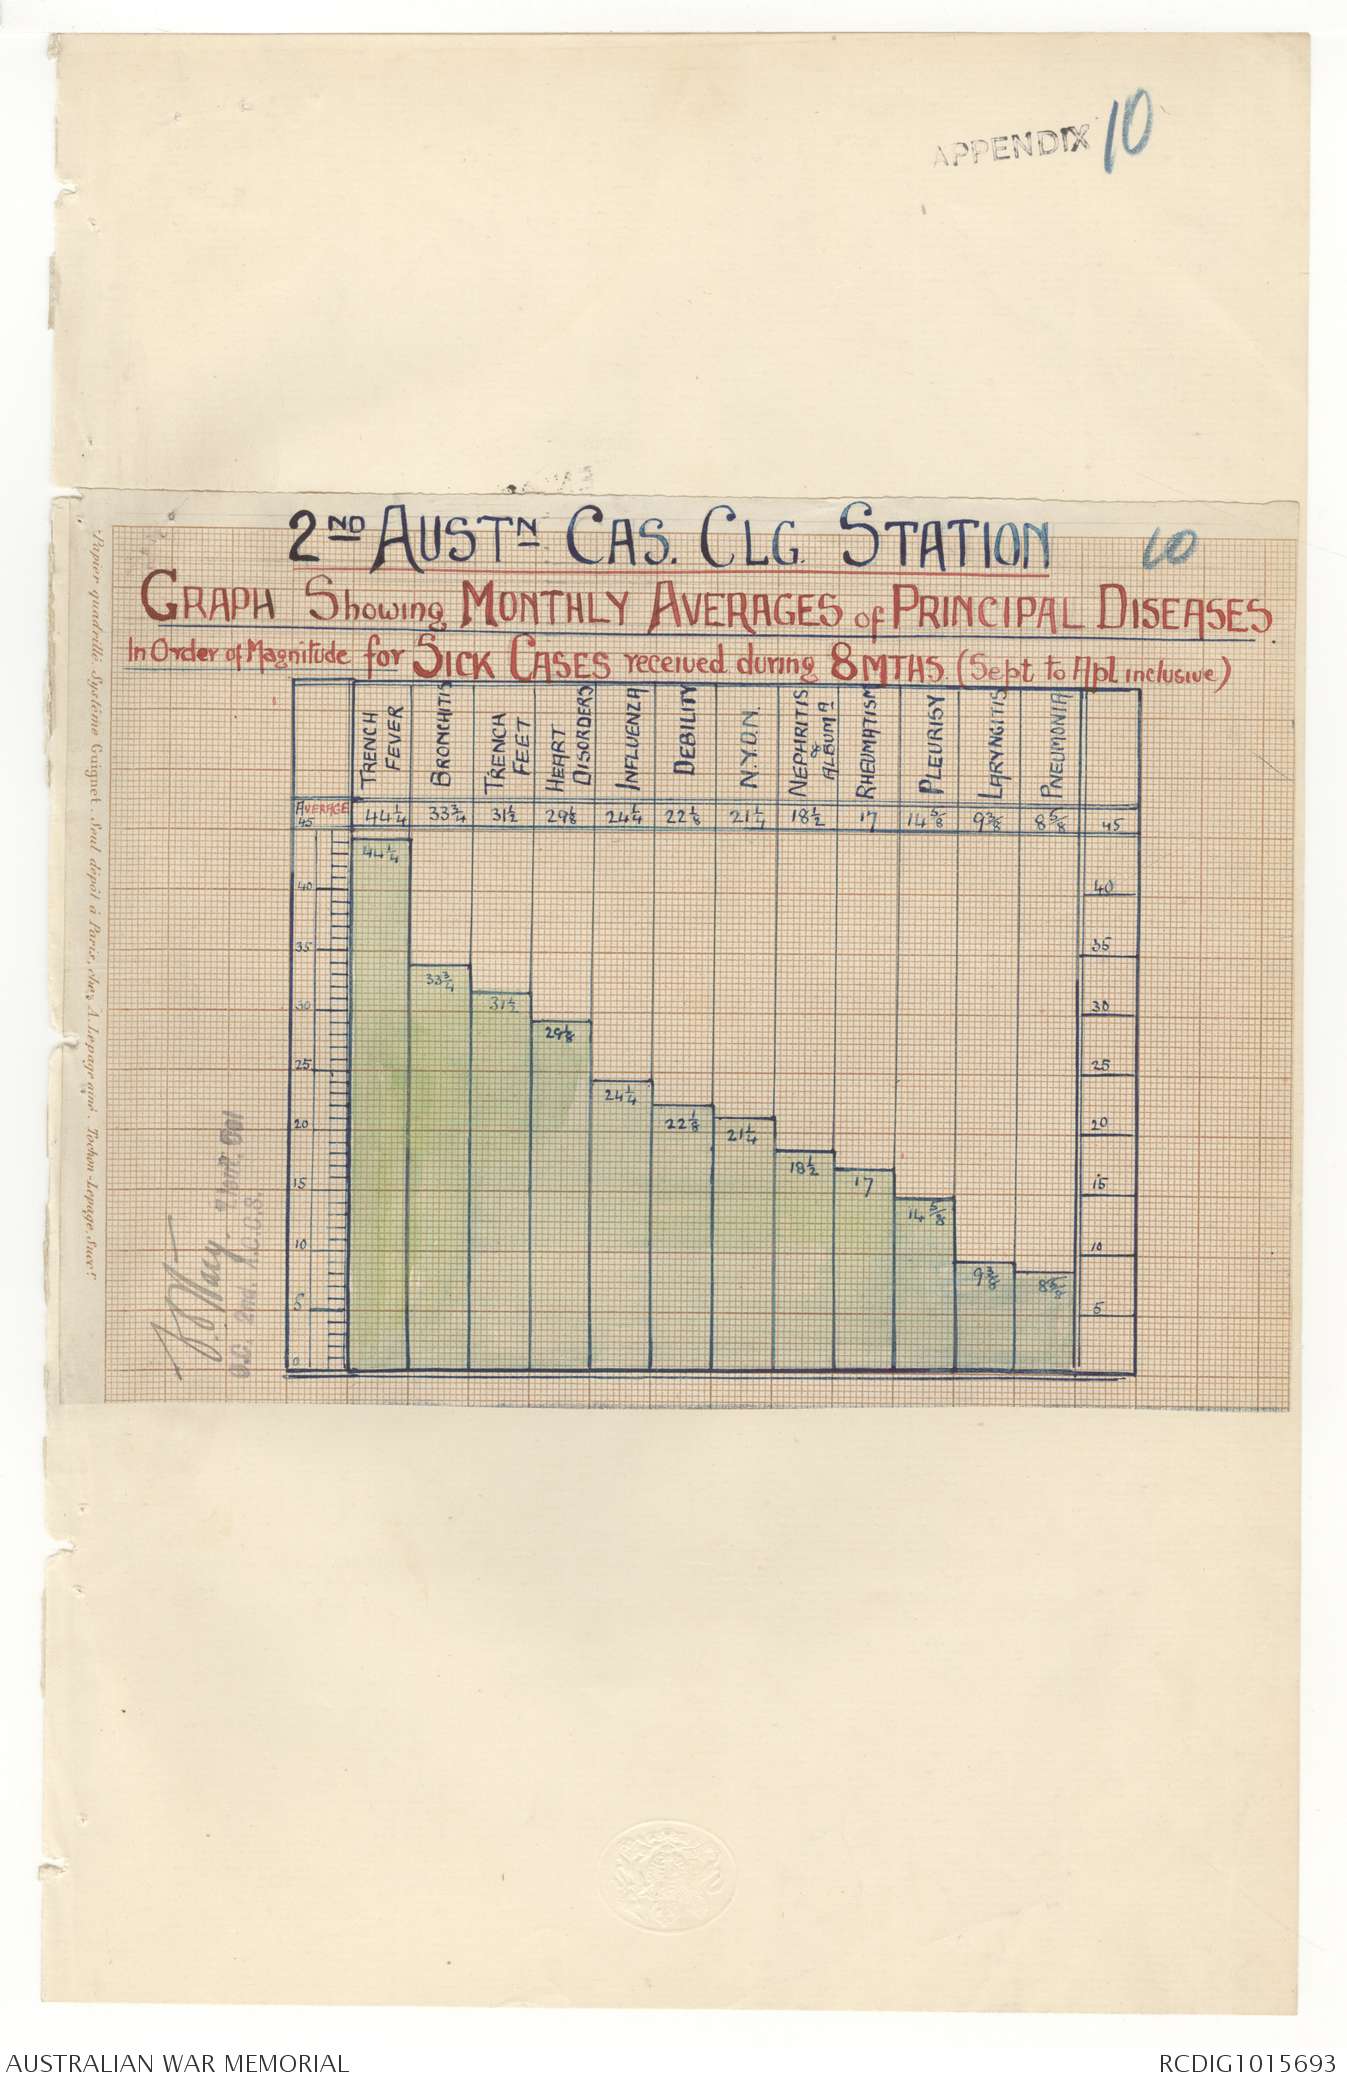 APPENDIX 10
2ND AUSTN CAS. CLG. STATION
10
GRAPH Showing MONTHLY AVERAGES of PRINCIPAL DISEASES.
In Order of Magnitude for SICK CASES received during 8 MTHS. (Sept to Apl inclusive)
TRENCH FEVER
BRONCHITIS
TRENCH FEET
HEART DISORDERS
INFLUENZA
DEBILITY
N.Y.D.N.
NEPHRITIS & ALBUMA
RHEUMATISM
PLEURISY
LARYNGITIS
PNEUMONIA
AVERAGE 44 1/4 33 3/4 31 1/2 29 1/8 24 1/4 22 1/8 21 1/4 18 1/2 17 14 5/8 9 3/8 8 5/8
45 45
44 1/4
40 40
35 35
33 3/4
31 1/2
30 30
29 1/8
25 25
24 1/4
22 1/8
21 1/4
20 20
18 1/2
17
15 15
14 5/8
10 10
9 3/8
8 5/8
5 5
0
O.C. 2nd. A.C.C.S.
Papier quadrillé. Système Guignet. Seul dépôt à Paris, chez A. Lepage ainé. Tochon-Lepage, Succr
AUSTRALIAN WAR MEMORIAL
RCDIG1015693